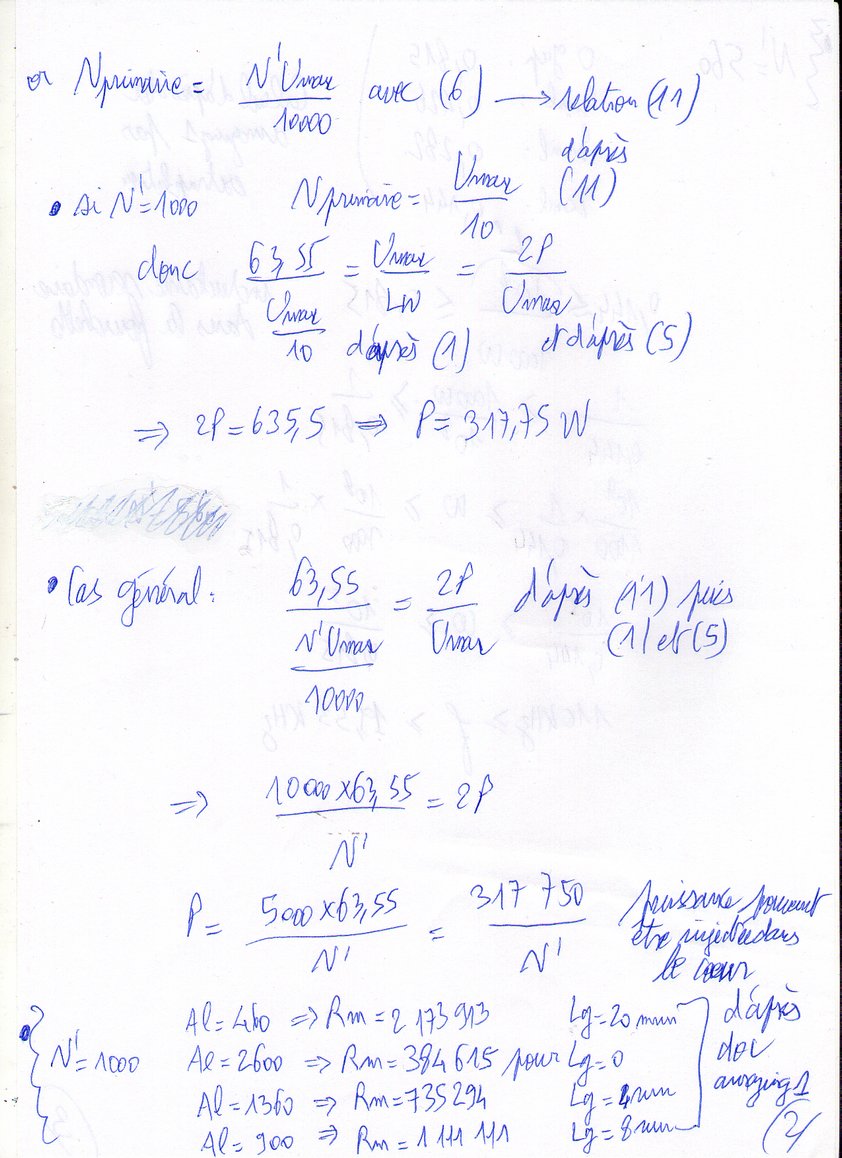 or Nprimaire = N'Umax / 10000 avec (6) → relation (11)
• si N'=1000 Nprimaire = Umax / 10 d'après (11)
donc 63,55 / (Umax / 10) = Umax / LW = 2P / Umax
d'après (1) et d'après (5)
⇒ 2P = 635,5 ⇒ P = 317,75 W
• Cas général : 63,55 / (N'Umax / 10000) = 2P / Umax d'après (11) puis (1) et (5)
⇒ 10000 x 63,55 / N' = 2P
P = 5000 x 63,55 / N' = 317 750 / N' puissance pouvant
être injectée dans
le cœur
• N'=1000
Al = 460 ⇒ Rm = 2 173 913 Lg = 20 mm
Al = 2600 ⇒ Rm = 384 615 pour Lg = 0
Al = 1360 ⇒ Rm = 735 294 Lg = 4 mm
Al = 900 ⇒ Rm = 1 111 111 Lg = 8 mm
d'après
doc
(2)